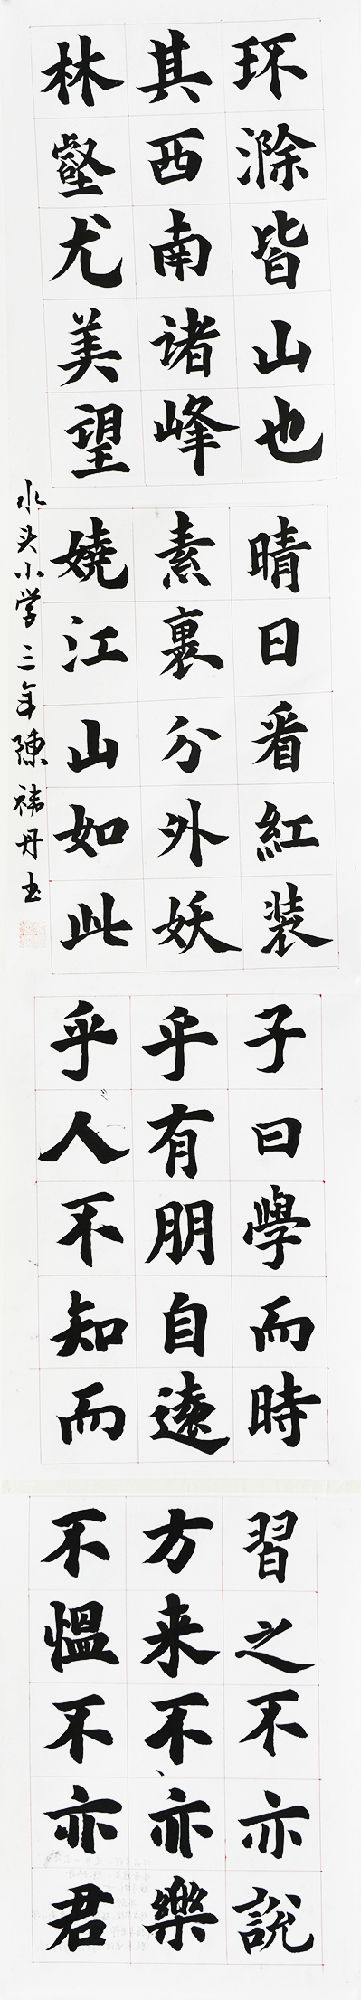 环滁皆山也
其西南诸峰
林壑尤美望
晴日看紅装
素裹分外妖
嬈江山如此
水头小学三年陳祎丹书
子曰學而時習之不亦說
乎有朋自遠方来不亦樂
乎人不知而不愠不亦君